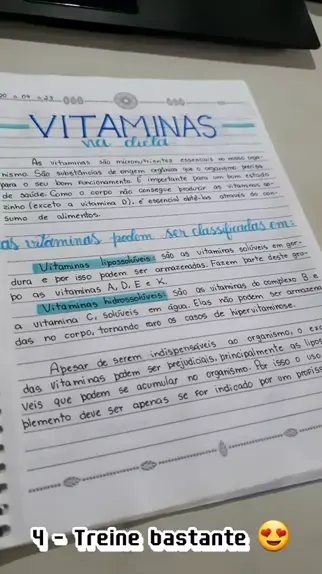 20 . 04 . 23
VITAMINAS
na dieta
As vitaminas são micronutrientes essenciais ao nosso orga-
nismo. São substâncias de origem orgânica que o organismo precisa
para o seu bom funcionamento. É importante para um bom estado
de saúde. Como o corpo não consegue produzir as vitaminas so-
zinho (exceto a vitamina D), é essencial obtê-las através do con-
sumo de alimentos.
as vitaminas podem ser classificadas em:
Vitaminas lipossolúveis: são as vitaminas solúveis em gor-
dura e por isso podem ser armazenadas. Fazem parte deste gru-
po as vitaminas A, D, E e K.
Vitaminas hidrossolúveis: são as vitaminas do complexo B e
a vitamina C, solúveis em água. Elas não podem ser armazena
das no corpo, tornando raro os casos de hipervitaminose.
Apesar de serem indispensáveis ao organismo, o exc
das vitaminas podem ser prejudiciais, principalmente as lipos
veis que podem se acumular no organismo. Por isso o uso
plemento deve ser apenas se for indicado por um profiss
4 - Treine bastante 😍